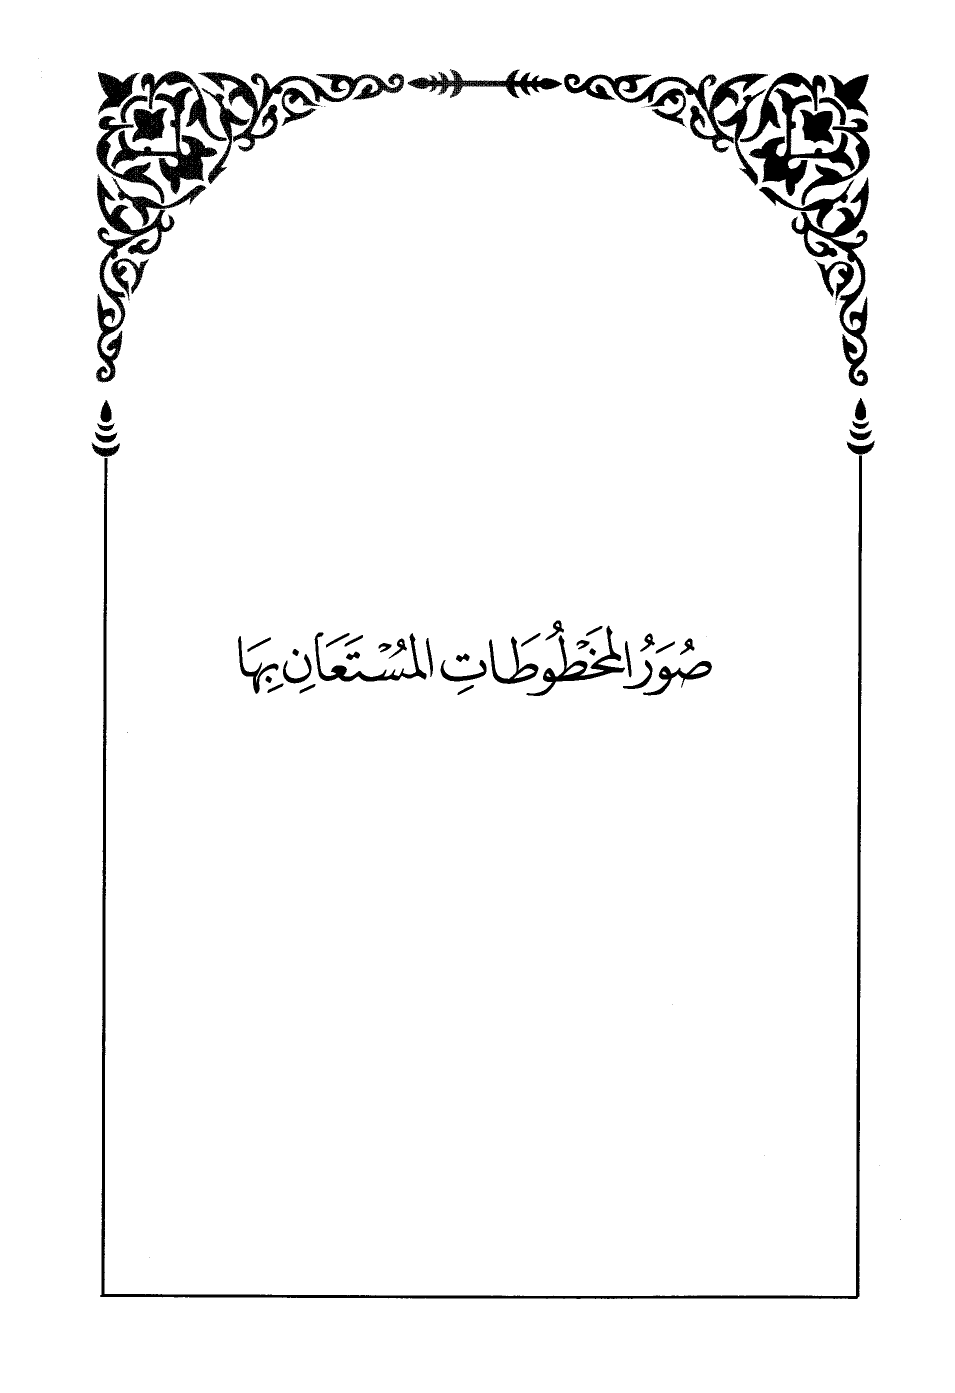 صُوَرُ المَخْطُوطَاتِ المُسْتَعَانِ بِهَا